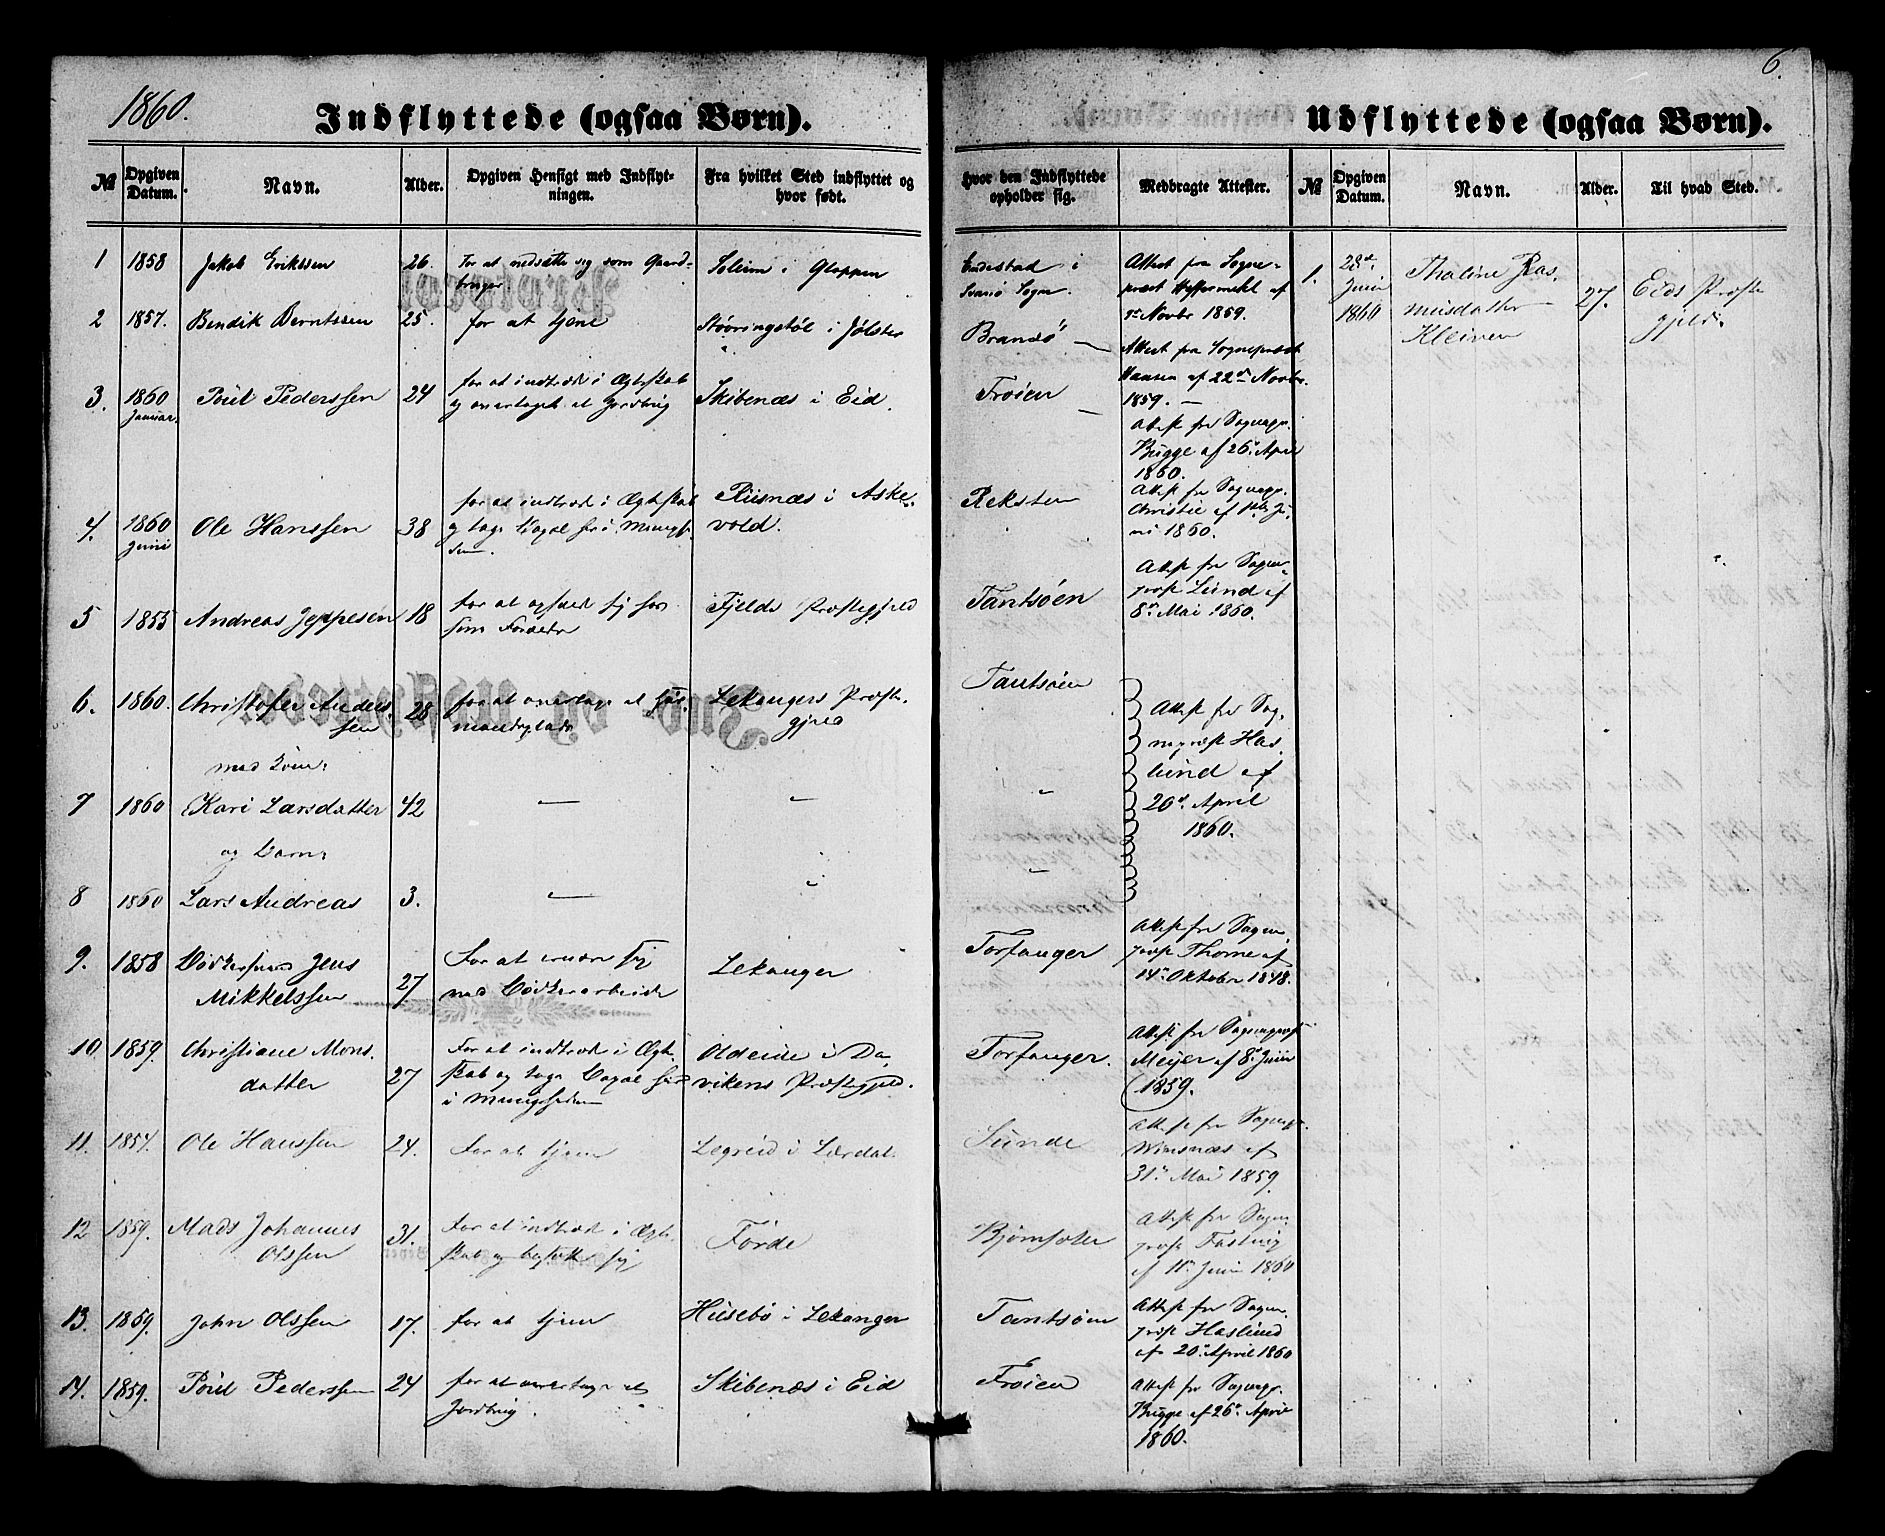 1860.
6.
Indflyttede (ogsaa Børn).
Udflyttede (ogsaa Børn).
№ Opgiven Datum. Navn. Alder. Opgiven Hensigt med Indflytningen. Fra hvilket Sted indflyttet og hvor født. Hvor den Indflyttede opholder sig. Medbragte Attester.
№ Opgiven Datum. Navn. Alder. Til hvad Sted.
1 1858 Jakob Erikssen 26. For at nedsætte sig som Gaardbruger Soleim i Gloppen Endestad i Svanø Sogn. Attest fra Sognepræst af 1ste Novbr 1859.
2 1857. Bendik Berntssen 25. for at tjene i Jølster Brandsö Attest fra Sognepræst Hansen af 22de Novbr. 1859.
3. 1860 Januar. Poul Pederssen 24 for at indtræde i Ægteskab og overtage et Jordbrug Skibenæs i Eid. Frøien Attest fra Sognepr. Bugge af 26. April 1860.
4. 1860 Juni Ole Hanssen 38 for at indtræde i Ægteskab og tage Bopæl her i Menigheden. Riisnæs i Askevold. Reksten Attest fra Sognepr. Christie af Juni 1860.
5 1855 Andreas Jeppesen 18 for at opholde sig hos sine Forældre Fjelds Præstegjeld Tantsøen Attest fra Sognepræst Lund af 8de Mai 1860.
6. 1860. Christofer Anderssen 28 for at overtage et Huusmandsplads Lekangers Præstegjeld Tantsøen Attest fra Sognepræst Haslund af 20de April 1860.
med Kone:
7 1860 Kari Larsdatter 42 — — "
og Barn:
8 1860 Lars Andreas 3. — " "
9. 1858 Bødkersvend Jens Mikkelssen 27 For at ernære sig med Bødkerarbeide Lekanger Torfanger Attest fra Sognepræst Thorne af 14de Oktober 1848.
10. 1859. Christiane Monsdatter 27 For at indtræde i Ægteskab og tage Bopæl her i Menigheden Oldeide i Davikens Præstegjeld. Torfanger. Attest fra Sognepræst Meijer af 8de Juni 1859.
11. 1854. Ole Hanssen 24. For at tjene Legreid i Lærdal Sunde Attest fra Sognepr. Wiesnæs af 31te Mai 1859.
12 1859. Mads Johannes Olssen 31. For at indtræde i Ægteskab og bosætte sig Førde Attest fra Sognepræst af 11te Juni 1860
13. 1859. John Olssen 17. for at tjene Husebö i Lekanger Tantsøen Attest fra Sognepræst Haslund af 20de April 1860
14. 1859. Poul Pederssen 24 for at overtage et Jordbrug. Skibenæs i Eid Frøien Attest fra Sognepr. Bugge af 26de April 1860.
1. 28de Juni 1860 Thaline Rasmusdatter Kleiven 27. Eids Præstegjeld.